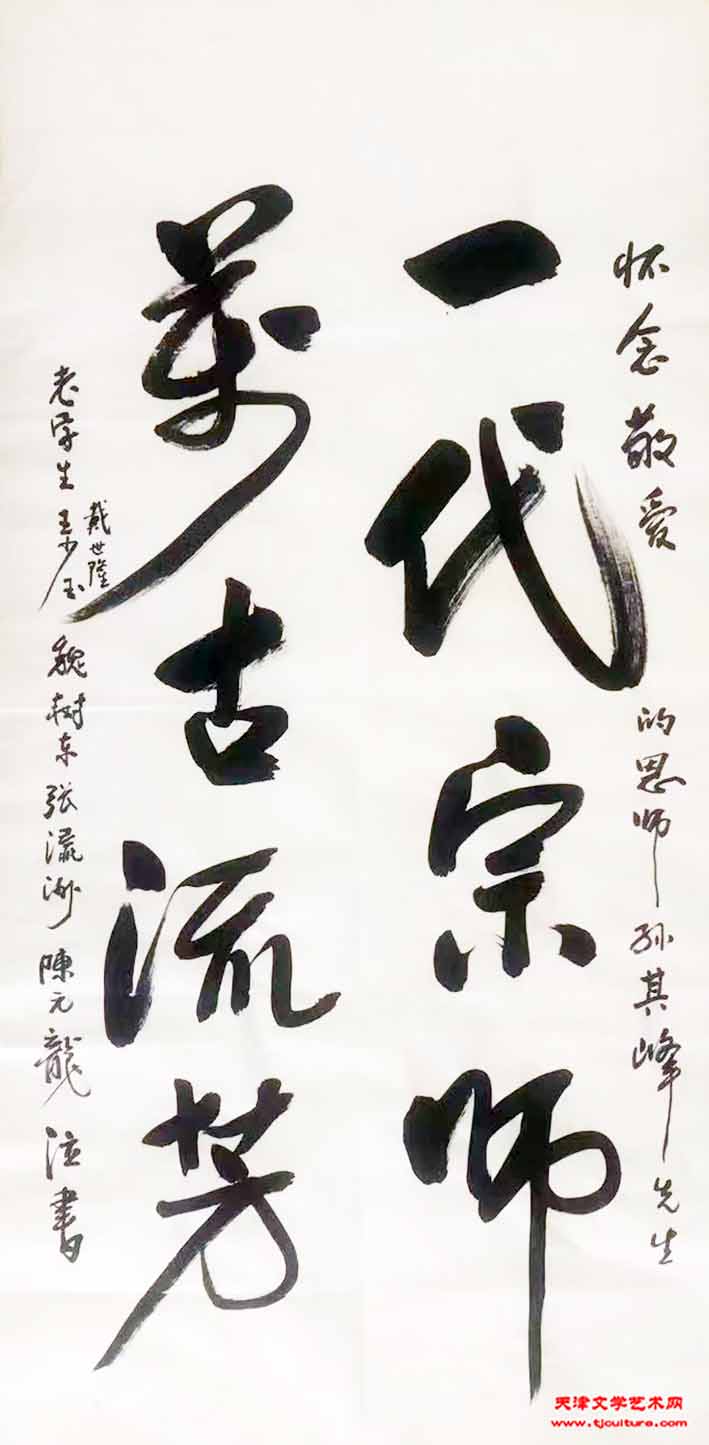 怀念敬爱的恩师孙其峰先生
一代宗师
萬古流芳
老学生王少玉戴世隆魏树东张瀛洲陳元龍泣書
天津文学艺术网
www.tjculture.com